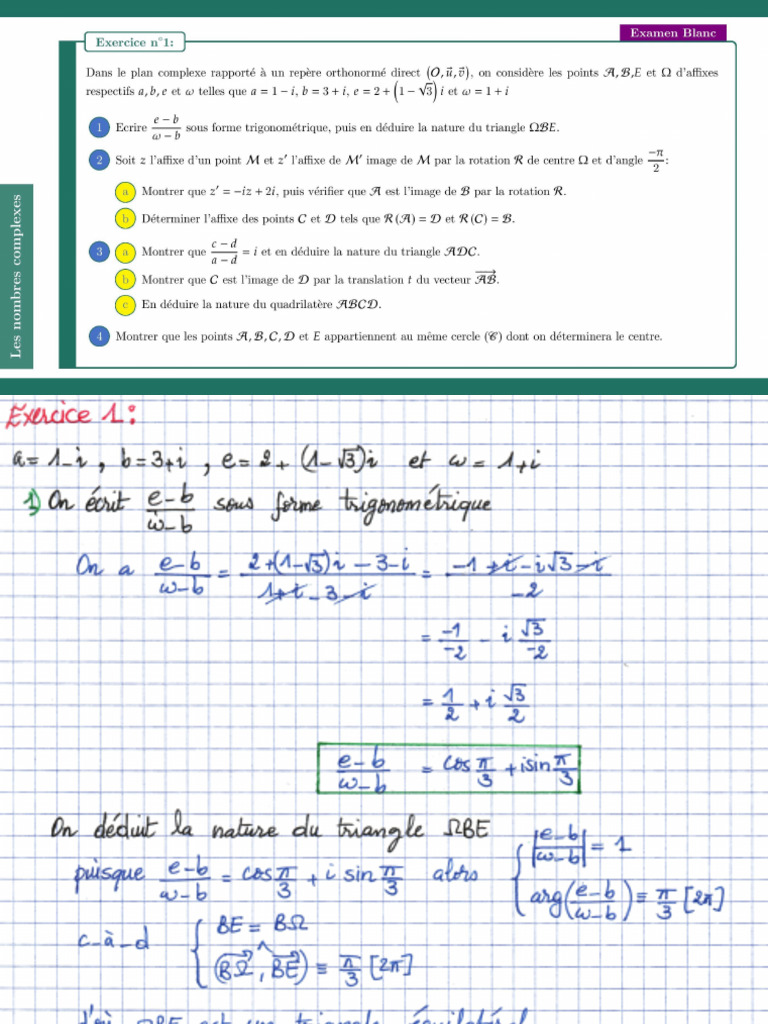 Examen Blanc
Exercice n°1:
Dans le plan complexe rapporté à un repère orthonormé direct (O, u⃗, v⃗), on considère les points A, B, E et Ω d'affixes
respectifs a, b, e et ω telles que a = 1 − i, b = 3 + i, e = 2 + (1 − √3) i et ω = 1 + i
1 Ecrire (e − b)/(ω − b) sous forme trigonométrique, puis en déduire la nature du triangle ΩBE.
2 Soit z l'affixe d'un point M et z′ l'affixe de M′ image de M par la rotation R de centre Ω et d'angle −π/2 :
a Montrer que z′ = −iz + 2i, puis vérifier que A est l'image de B par la rotation R.
b Déterminer l'affixe des points C et D tels que R (A) = D et R (C) = B.
3 a Montrer que (c − d)/(a − d) = i et en déduire la nature du triangle ADC.
b Montrer que C est l'image de D par la translation t du vecteur AB⃗.
c En déduire la nature du quadrilatère ABCD.
4 Montrer que les points A, B, C, D et E appartiennent au même cercle (C) dont on déterminera le centre.
Les nombres complexes
Exercice 1:
a = 1-i , b = 3+i , e = 2 + (1-√3)i et ω = 1+i
1) On écrit (e-b)/(ω-b) sous forme trigonométrique
On a (e-b)/(ω-b) = (2+(1-√3)i - 3-i)/(1+i - 3-i) = (-1+i-i√3-i)/(-2)
= -1/-2 - i √3/-2
= 1/2 + i √3/2
(e-b)/(ω-b) = cos π/3 + i sin π/3
On déduit la nature du triangle ΩBE
puisque (e-b)/(ω-b) = cos π/3 + i sin π/3 alors { |(e-b)/(ω-b)| = 1
arg((e-b)/(ω-b)) ≡ π/3 [2π]
c-à-d { BE = BΩ
(BΩ⃗, BE⃗) ≡ π/3 [2π]
d'où ΩBE est un triangle équilatéral